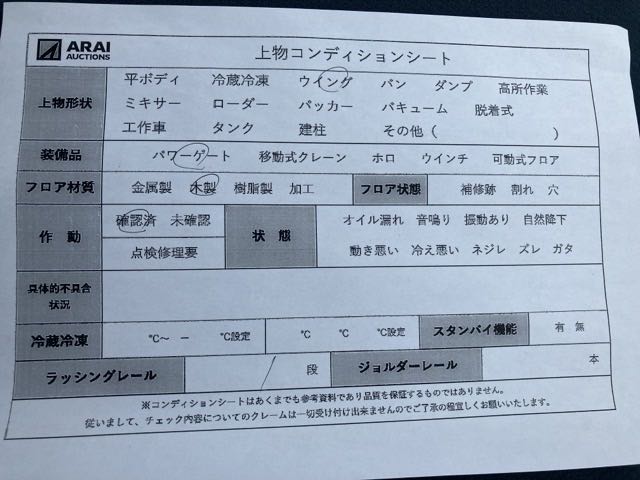 ARAI
AUCTIONS
上物コンディションシート
上物形状
平ボディ 冷蔵冷凍 ウイング バン ダンプ 高所作業
ミキサー ローダー パッカー バキューム 脱着式
工作車 タンク 建柱 その他( )
装備品 パワーゲート 移動式クレーン ホロ ウインチ 可動式フロア
フロア材質 金属製 木製 樹脂製 加工 フロア状態 補修跡 割れ 穴
作動 確認済 未確認
点検修理要
状態 オイル漏れ 音鳴り 振動あり 自然降下
動き悪い 冷え悪い ネジレ ズレ ガタ
具体的不具合
状況
冷蔵冷凍 ℃~ ー ℃設定 ℃ ℃ ℃設定 スタンバイ機能 有 無
ラッシングレール / 段 ジョルダーレール 本
※コンディションシートはあくまでも参考資料であり品質を保証するものではありません。
従いまして、チェック内容についてのクレームは一切受け付け出来ませんのでご了承の程宜しくお願いいたします。